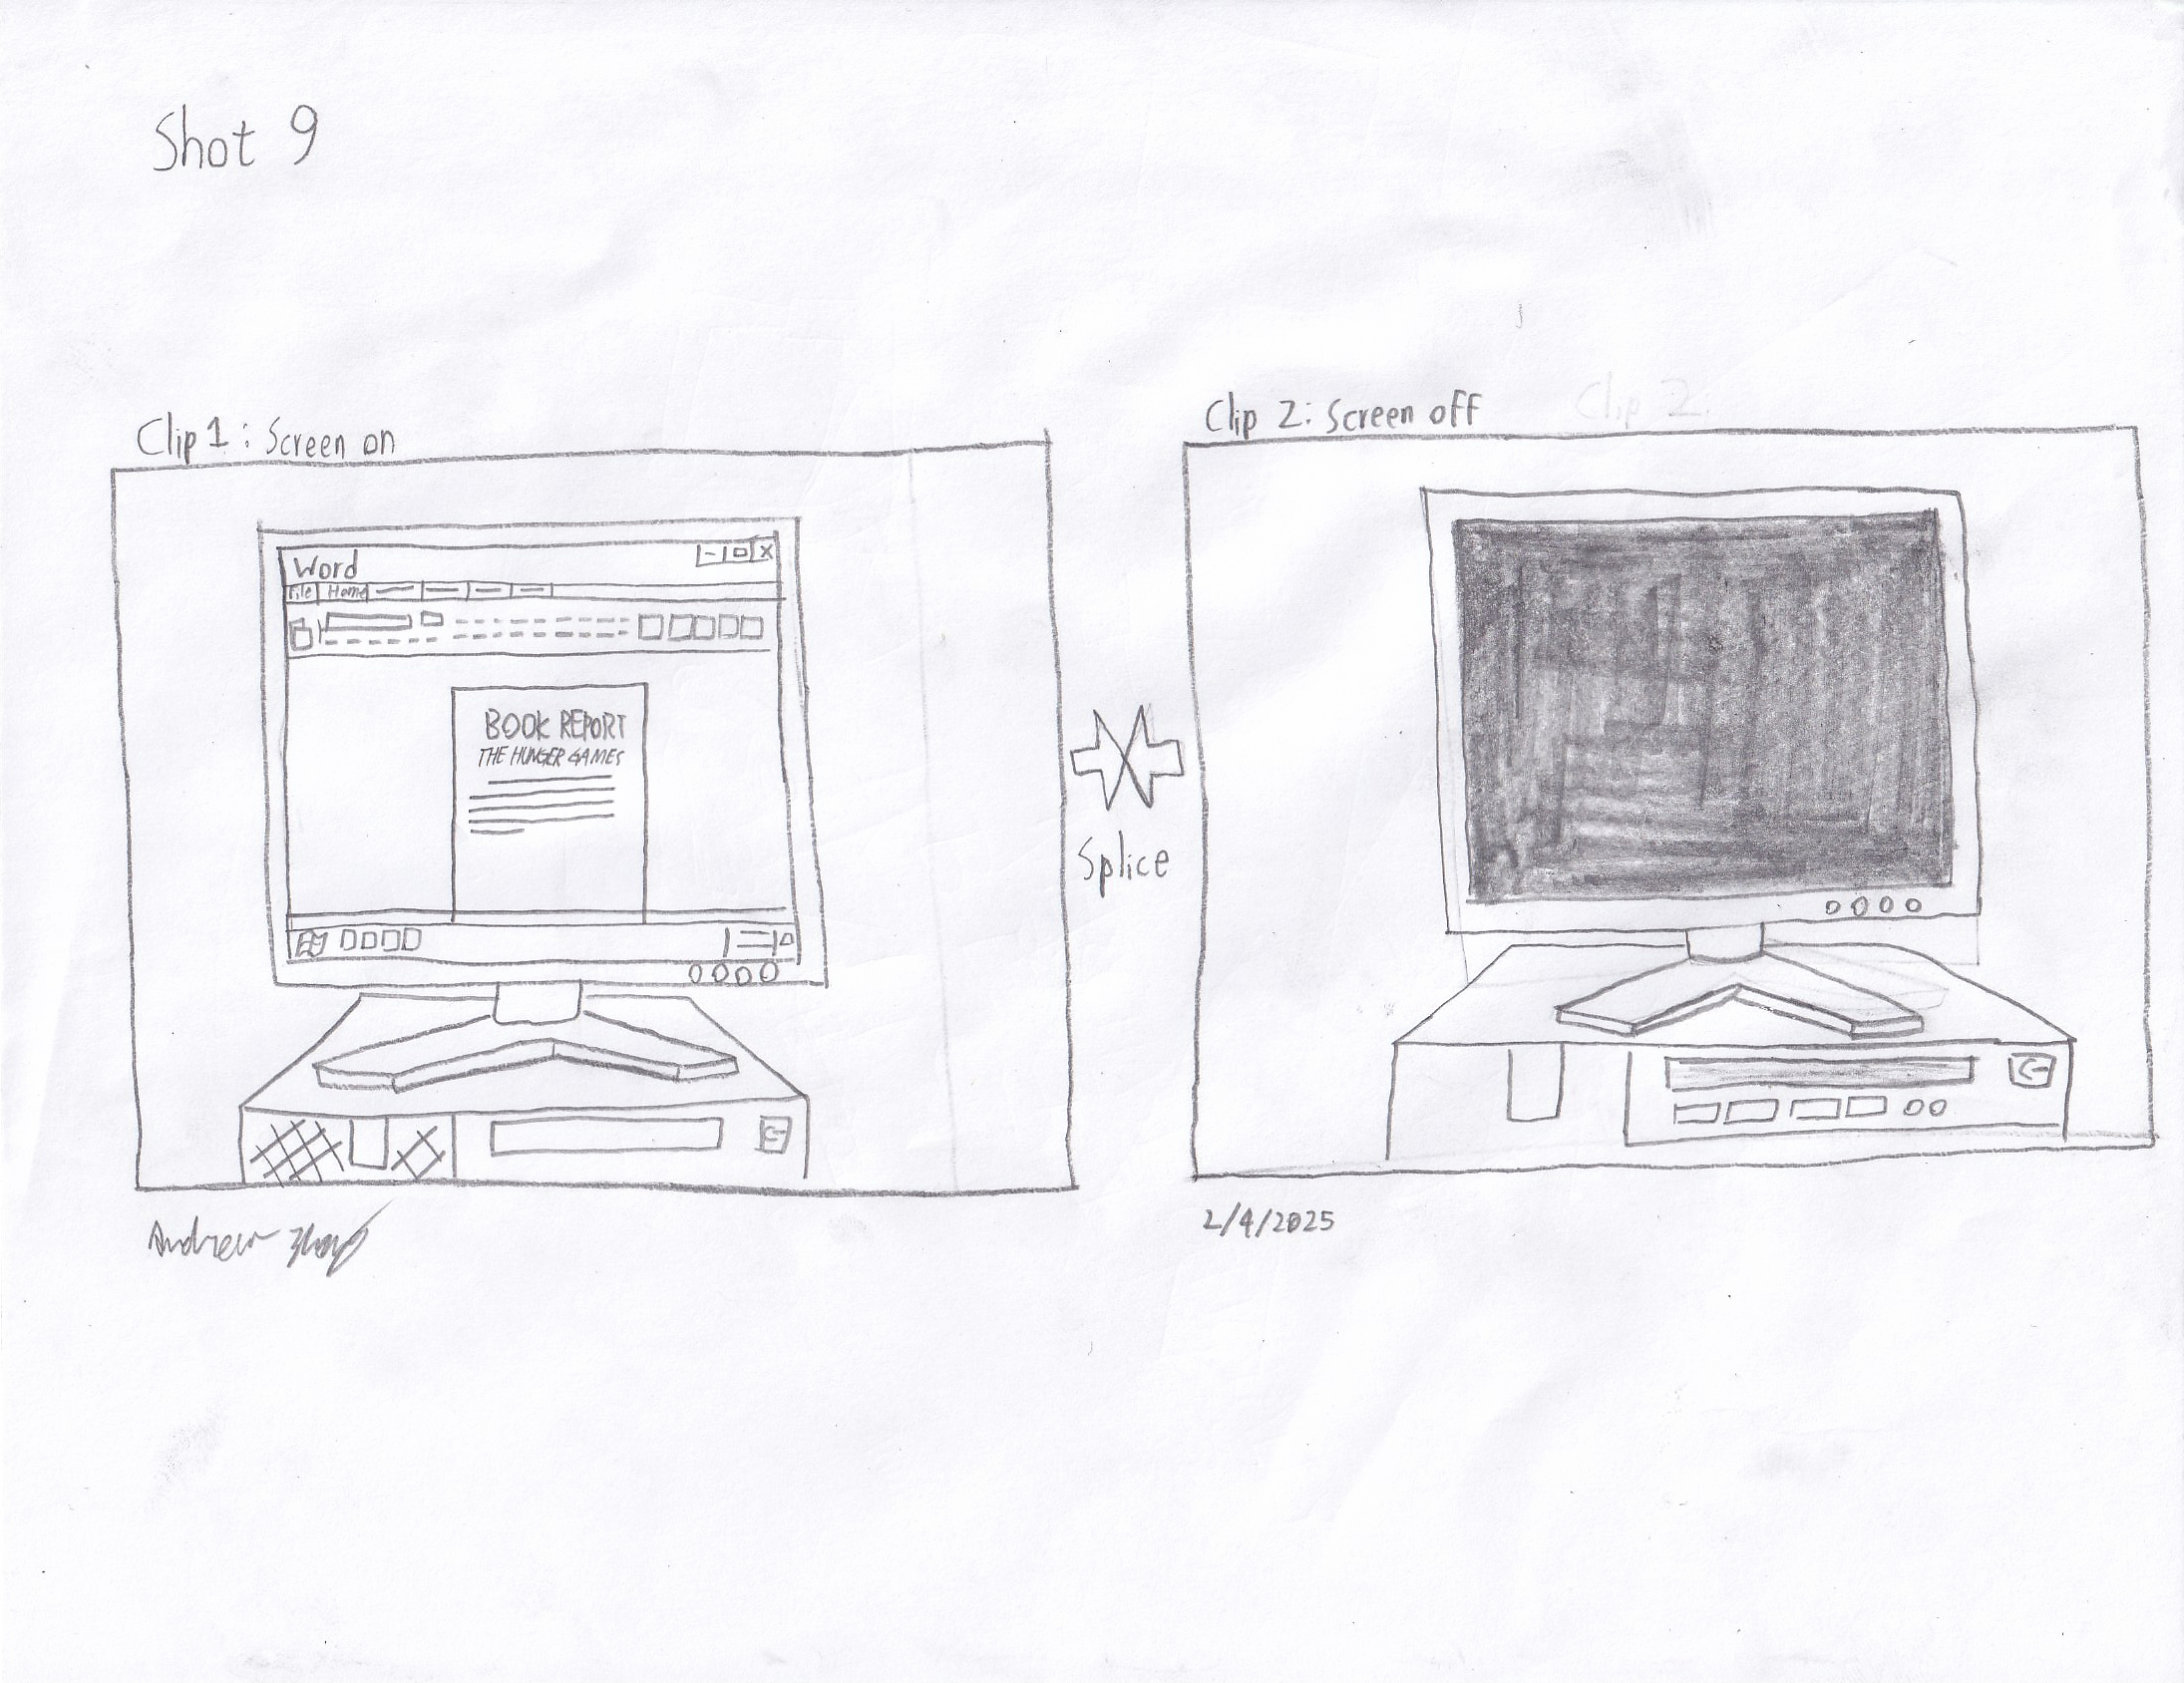 Shot 9
Clip 1: Screen on
Word
File Home
BOOK REPORT
THE HUNGER GAMES
Splice
Clip 2: Screen off
Clip 2:
Andrew
2/4/2025